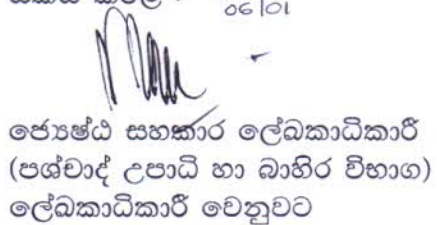 06/01
ජ්‍යෙෂ්ඨ සහකාර ලේඛකාධිකාරී
(පශ්චාද් උපාධි හා බාහිර විභාග)
ලේඛකාධිකාරී වෙනුවට